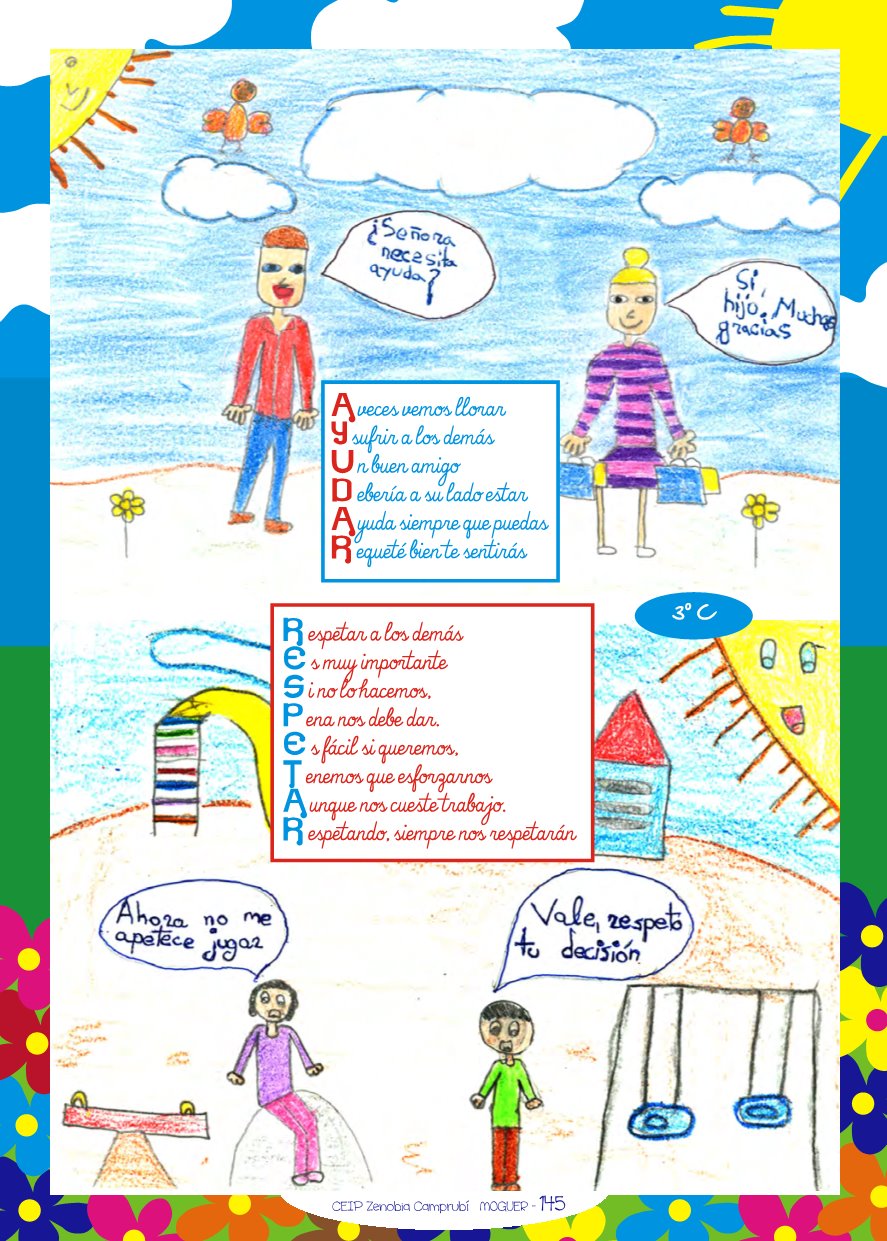 ¿Señora
necesita
ayuda?
Si,
hijo. Muchas
gracias
A veces vemos llorar
Y sufrir a los demás
Un buen amigo
Debería a su lado estar
Ayuda siempre que puedas
Requeté bien te sentirás
3º C
Respetar a los demás
Es muy importante
Si no lo hacemos,
Pena nos debe dar.
Es fácil si queremos,
Tenemos que esforzarnos
Aunque nos cueste trabajo.
Respetando, siempre nos respetarán
Ahora no me
apetece jugar
Vale, respeto
tu decisión
CEIP Zenobia Camprubí MOGUER - 145